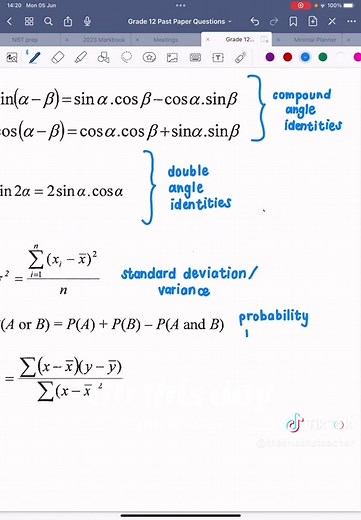 14:20 Mon 05 Jun
100%
Grade 12 Past Paper Questions
2023 Markbook
Meetings
Grade 12...
Minimal Planner
in(α − β) = sin α.cos β − cos α.sin β
os(α − β) = cos α.cos β + sin α.sin β
compound
angle
identities
in 2α = 2 sin α.cos α
double
angle
identities
² = ∑ⁿᵢ₌₁ (xᵢ − x̄)² / n
standard deviation/
variance
(A or B) = P(A) + P(B) − P(A and B)
probability
= ∑(x − x̄)(y − ȳ) / ∑(x − x̄ ²